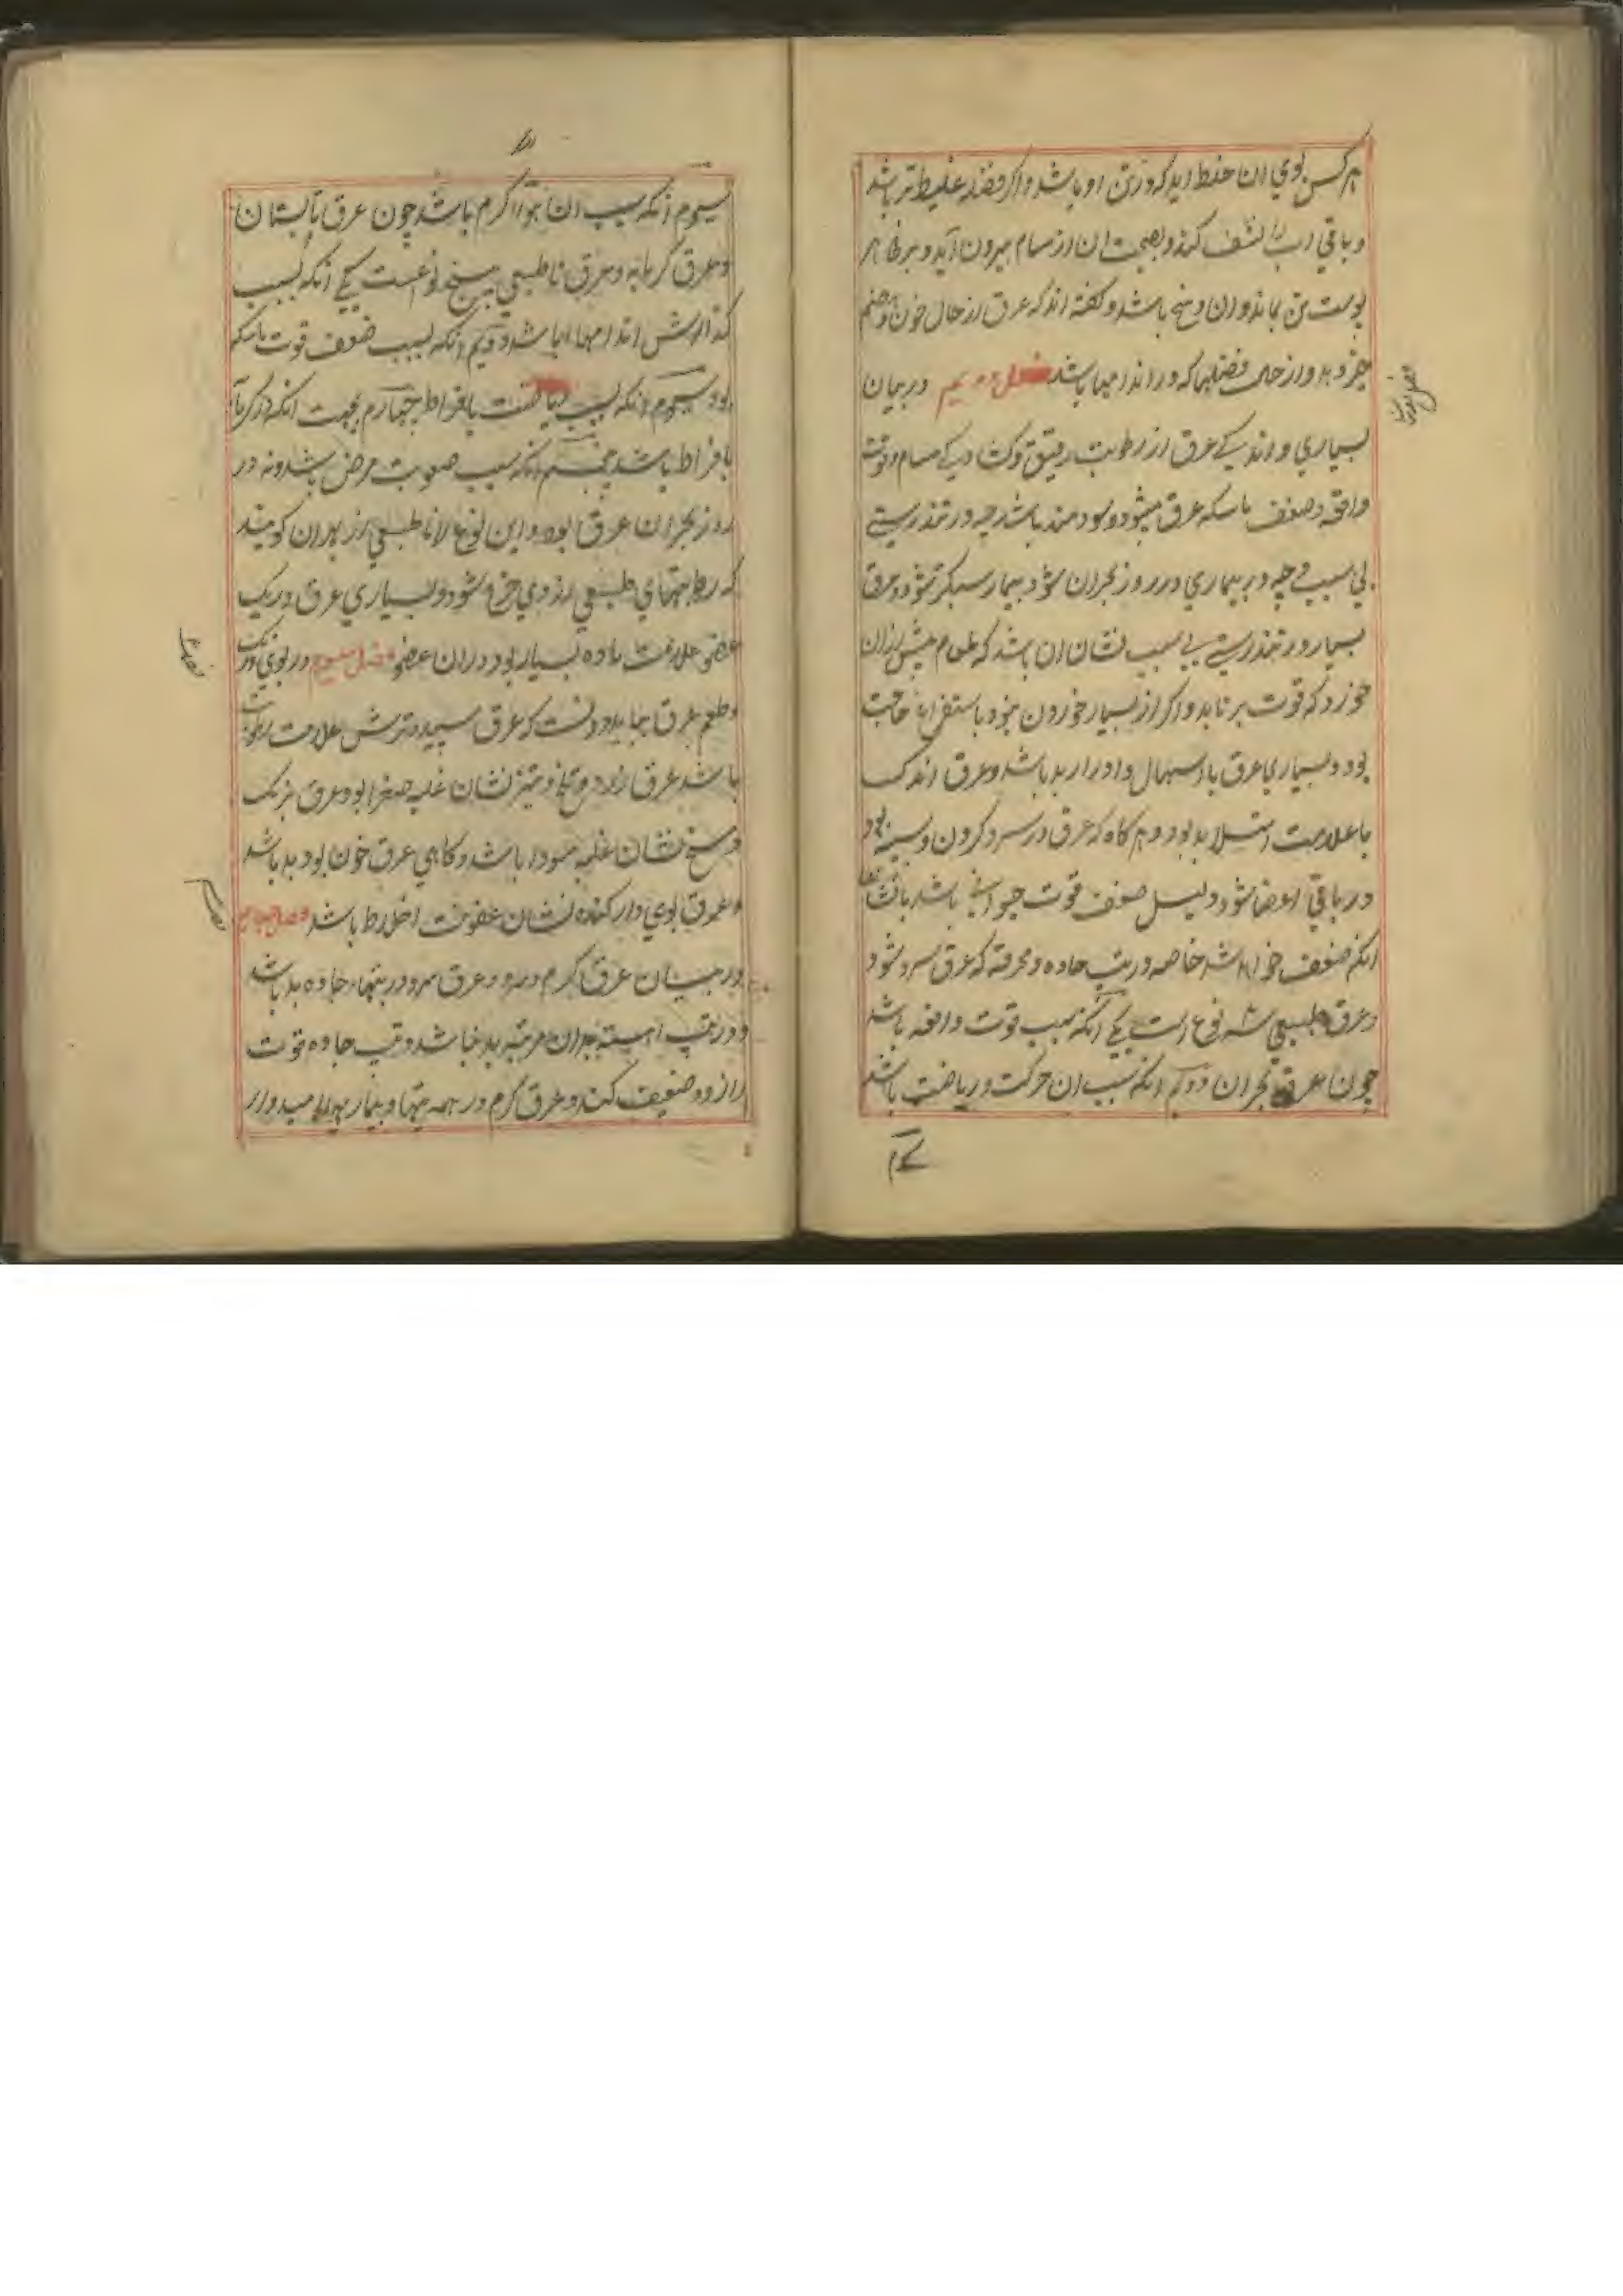 هر کس بوی ان خلط اید که در تن او باشد و اگر فضله غلیظ تر باشد
و باقی را نشف کند و بعضی ان از مسام بیرون آید و بر ظاهر
پوست تن بماند و ان وسخ باشد و گفته اند که عرق از حال خون و هضم
خبر دهد و از حال فضلها که در اندامها باشد فصل دویم در بیان
بسیاری و اندکی عرق از رطوبت رقیق و کشادگی مسام و قوت
دافعه و ضعف ماسکه عرق میشود و سودمند باشد چه در تندرستی
بی سببی چه در بیماری در روز بحران شود بیمار سبکتر شود و عرق
بسیار در تندرستی بی سبب نشان ان باشد که طعام بیش از ان
خورد که قوت بر تابد و اگر از بسیار خوردن نبود باستفراغ حاجت
بود و بسیاری عرق با اسهال و ادرار بد باشد و عرق اندک
با علامت امتلا بد بود و هر گاه که عرق در سر و گردن و سینه بود
در باقی اعضا نشود دلیل ضعف قوت حیوانی باشد
انکه ضعف خواهد شد خاصه در تب حاده و محرقه که عرق سرد شود
و عرق طبیعی سه نوع است یکی انکه بسبب قوت دافعه باشد
چون عرق بحران دویم انکه بسبب ان حرکت و ریاضت باشد
فصل دویم
سیوم انکه سبب ان هوا گرم باشد چون عرق تابستان
و عرق گرمابه و عرق ناطبیعی پنج نوعست یکی انکه بسبب
گدازش اندامها باشد دویم انکه بسبب ضعف قوت ماسکه
بود سیوم انکه بسبب ریاضت بافراط چهارم بجهت انکه از گرما
بافراط باشد پنجم انکه سبب صعوبت مرض باشد و نه در
روز بحران عرق بود و این نوع را ناطبیعی از بهر ان گویند
که رطوبتهای طبیعی از وی خرج شود و بسیاری عرق در یک
عضو علامت ماده بسیار بود در ان عضو فصل سیوم در بوی و رنگ
و طعم عرق بباید دانست که عرق سپید و ترش علامت رطوبت
باشد عرق زرد و تلخ و تیز نشان غلبه صفرا بود و عرق بزنگ
وسخ نشان غلبه سودا باشد و گاهی عرق خون بود بد باشد
و عرق بوی دار گنده نشان عفونت اخلاط باشد فصل چهارم
در بیان عرق گرم و سرد و عرق سرد در تبهاء حاده بد باشد
و در تب اهسته بدان مرتبه بد نباشد و تب حاده قوت
را زود ضعیف کند و عرق گرم در همه تبها و بیماریها امیدوار
فصل
فصل